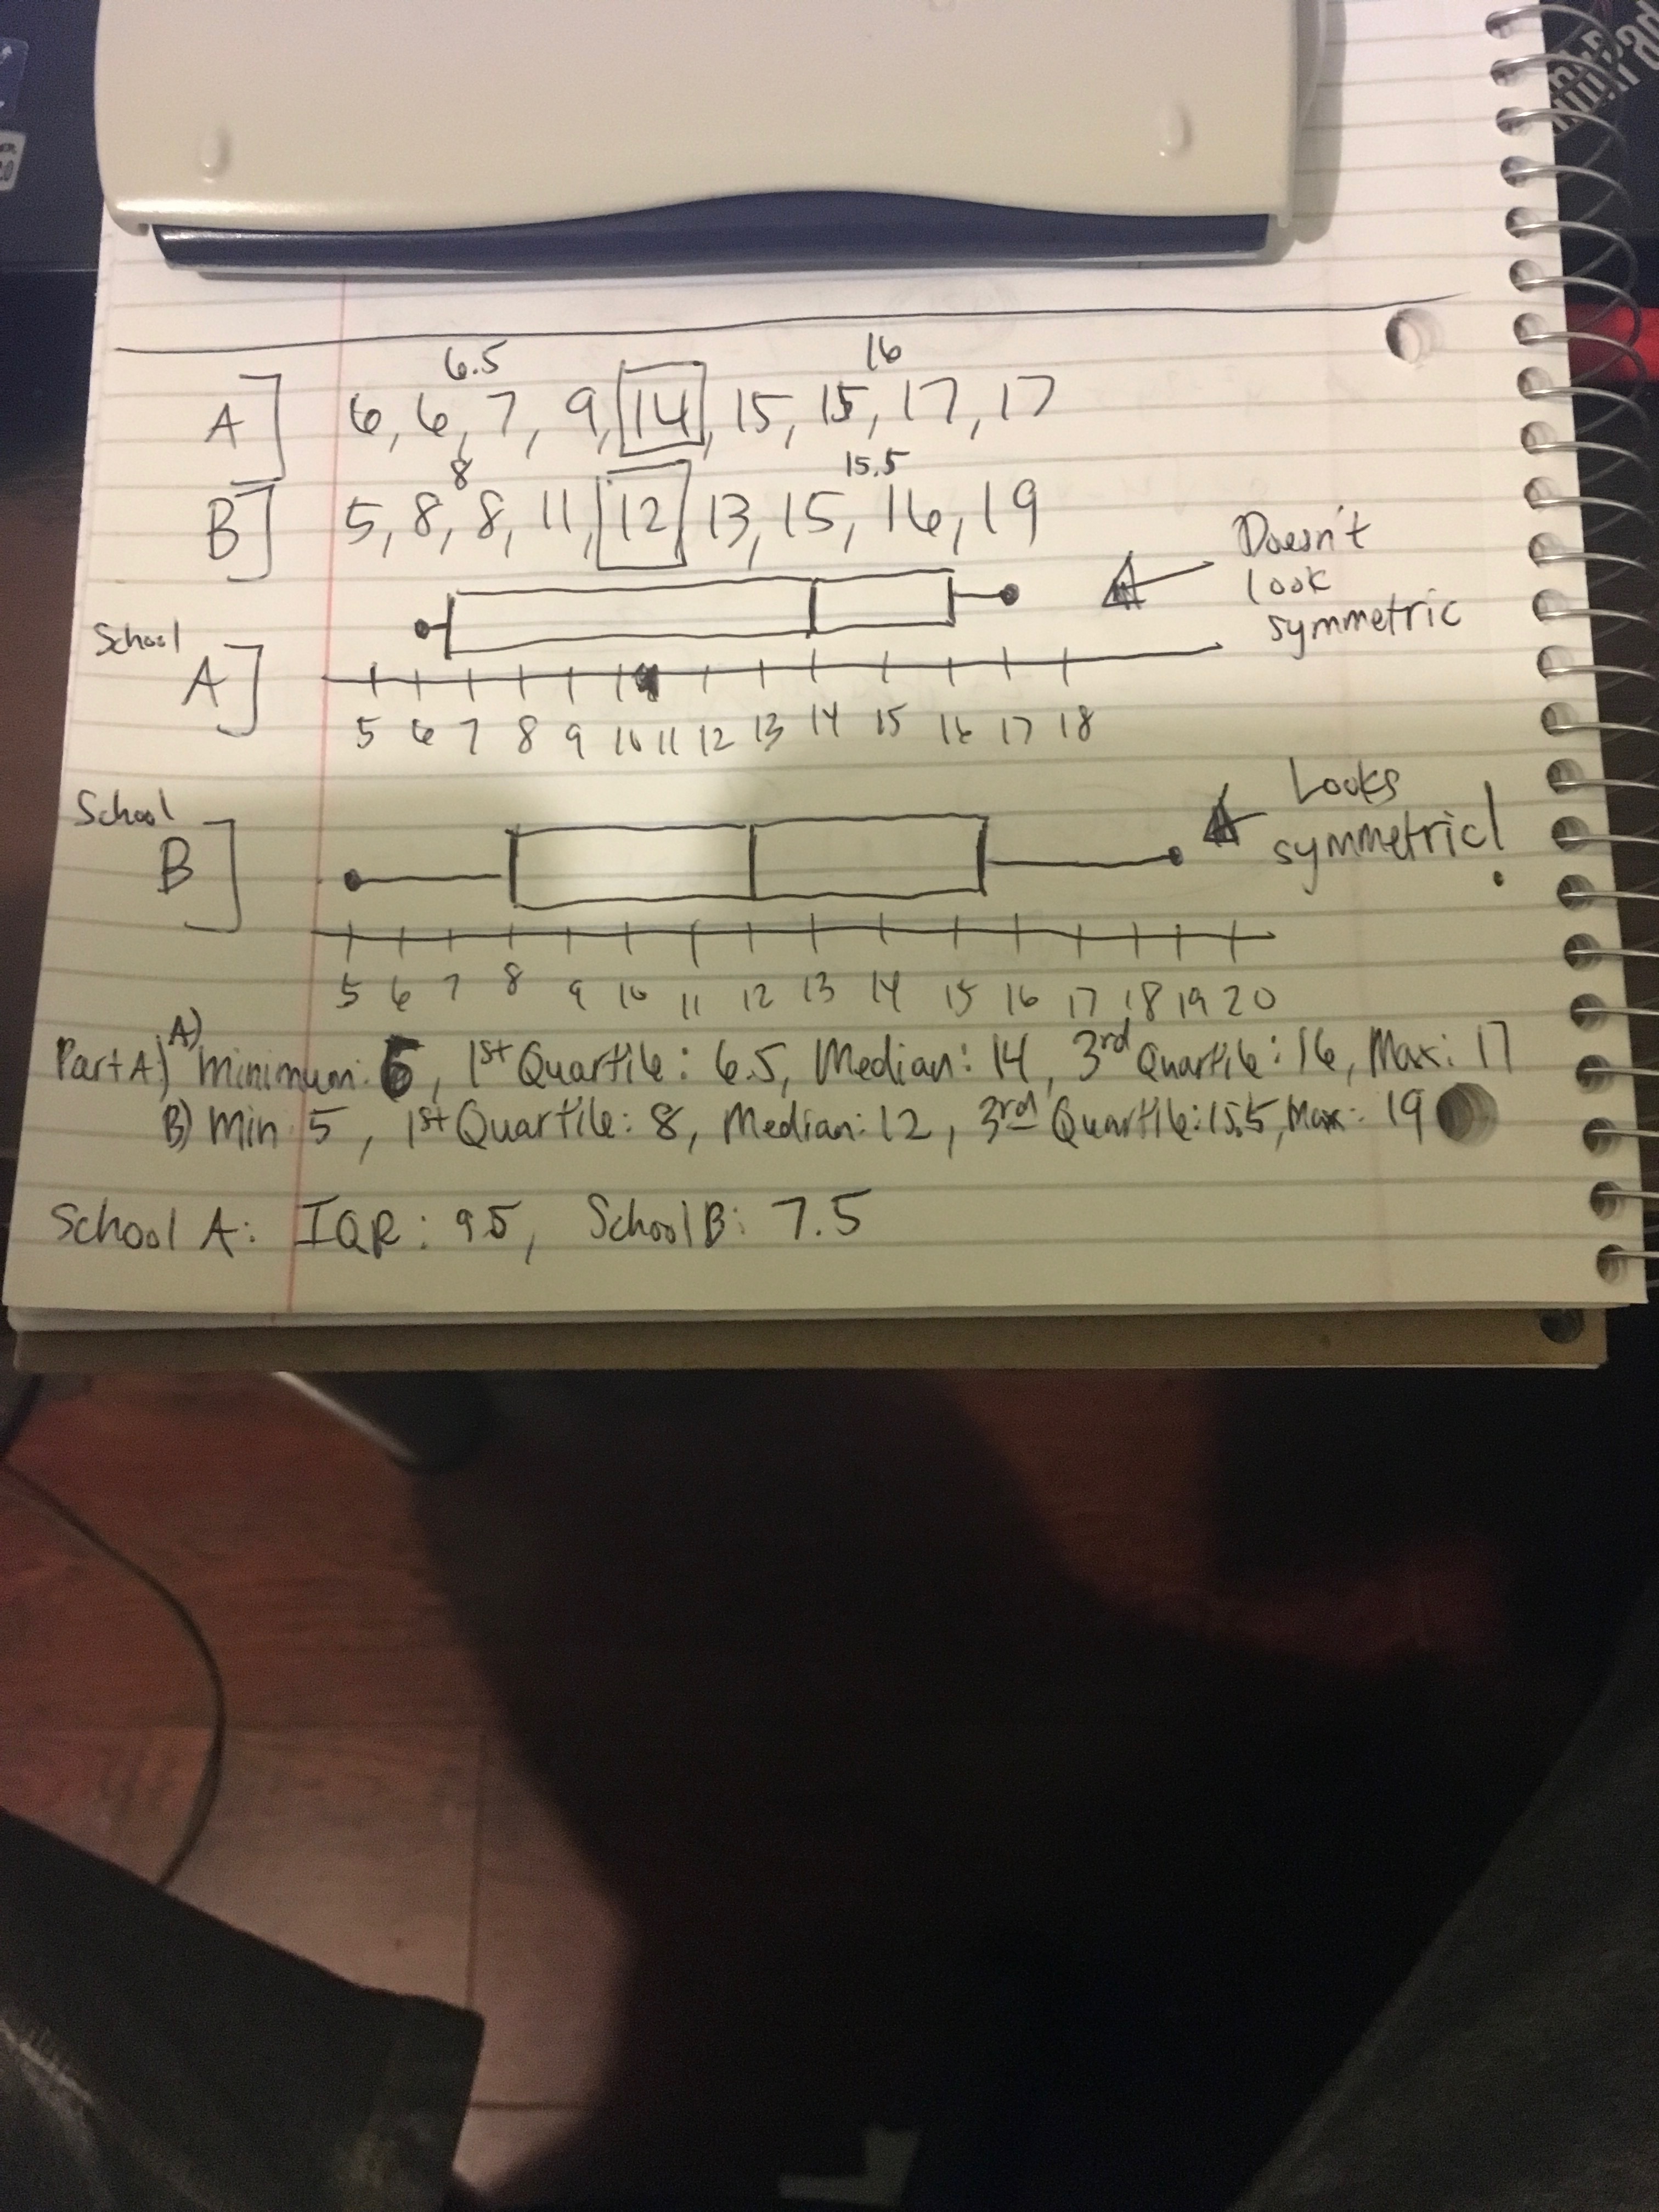 6.5 16
A] 6, 6, 7, 9, 14, 15, 15, 17, 17
8 15.5
B] 5, 8, 8, 11, 12, 13, 15, 16, 19
Doesn't
look
symmetric
School
A]
5 6 7 8 9 10 11 12 13 14 15 16 17 18
School
B]
Looks
symmetric!
5 6 7 8 9 10 11 12 13 14 15 16 17 18 19 20
Part A) A) Minimum: 6, 1st Quartile: 6.5, Median: 14, 3rd Quartile: 16, Max: 17
B) Min 5, 1st Quartile: 8, Median: 12, 3rd Quartile: 15.5, Max: 19
School A: IQR: 9.5, School B: 7.5